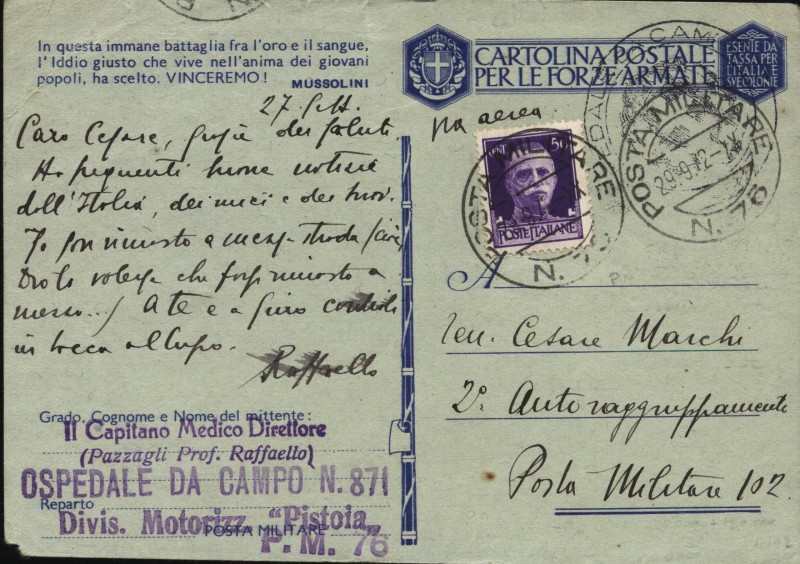 In questa immane battaglia fra l'oro e il sangue,
l'Iddio giusto che vive nell'anima dei giovani
popoli, ha scelto. VINCEREMO!
MUSSOLINI
27 Sett.
Caro Cesare, grazie dei saluti.
Ho frequenti buone notizie
dell'Italia, dei miei e dei tuoi.
Io son rimasto a mezza strada
Dio lo volesse che rimasto a
mezzo...) A te e a Piero
in bocca al lupo.
Raffaello
Grado, Cognome e Nome del mittente:
Il Capitano Medico Direttore
(Pazzagli Prof. Raffaello)
OSPEDALE DA CAMPO N. 871
Reparto
Divis. Motorizz. "Pistoia"
POSTA MILITARE
P. M. 76
CARTOLINA POSTALE
PER LE FORZE ARMATE
ESENTE DA
TASSA PER
L'ITALIA E
SUE COLONIE
via aerea
CENT 50
POSTE ITALIANE
POSTA MILITARE
N. 76
POSTA MILITARE
29.9.42
N. 76
A
Ten. Cesare Marchi
2º Autoraggruppamento
Posta Militare 102